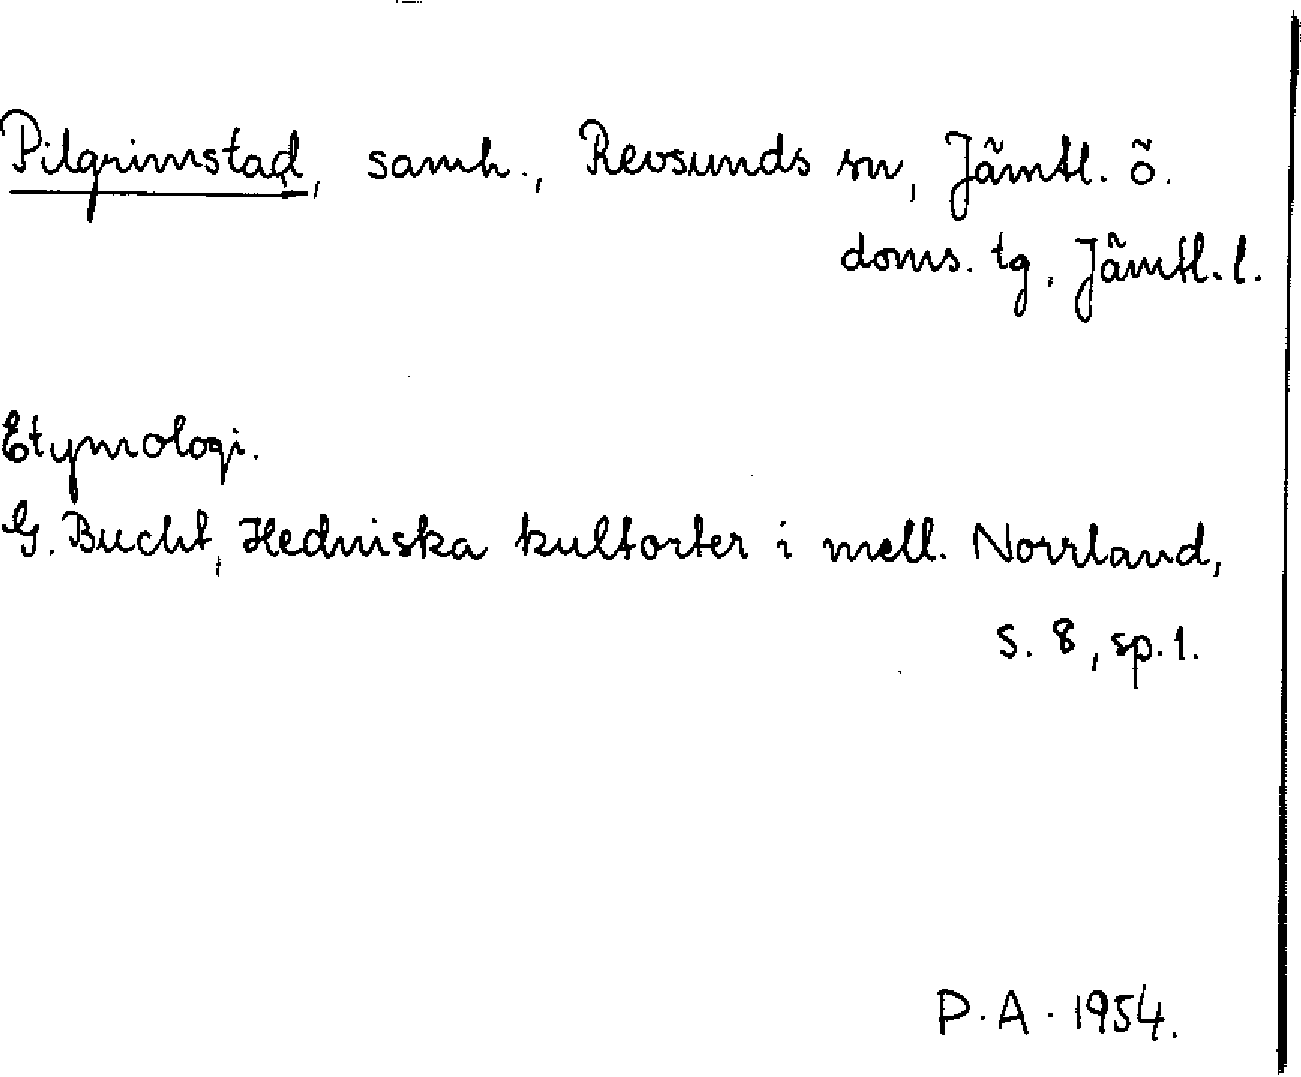 Pilgrimstad, samh., Revsunds sn, Jämtl. ö.
doms. tg, Jämtl. l.
Etymologi.
G. Bucht, Hedniska kultorter i mell. Norrland,
s. 8, sp. 1.
P. A. 1954.